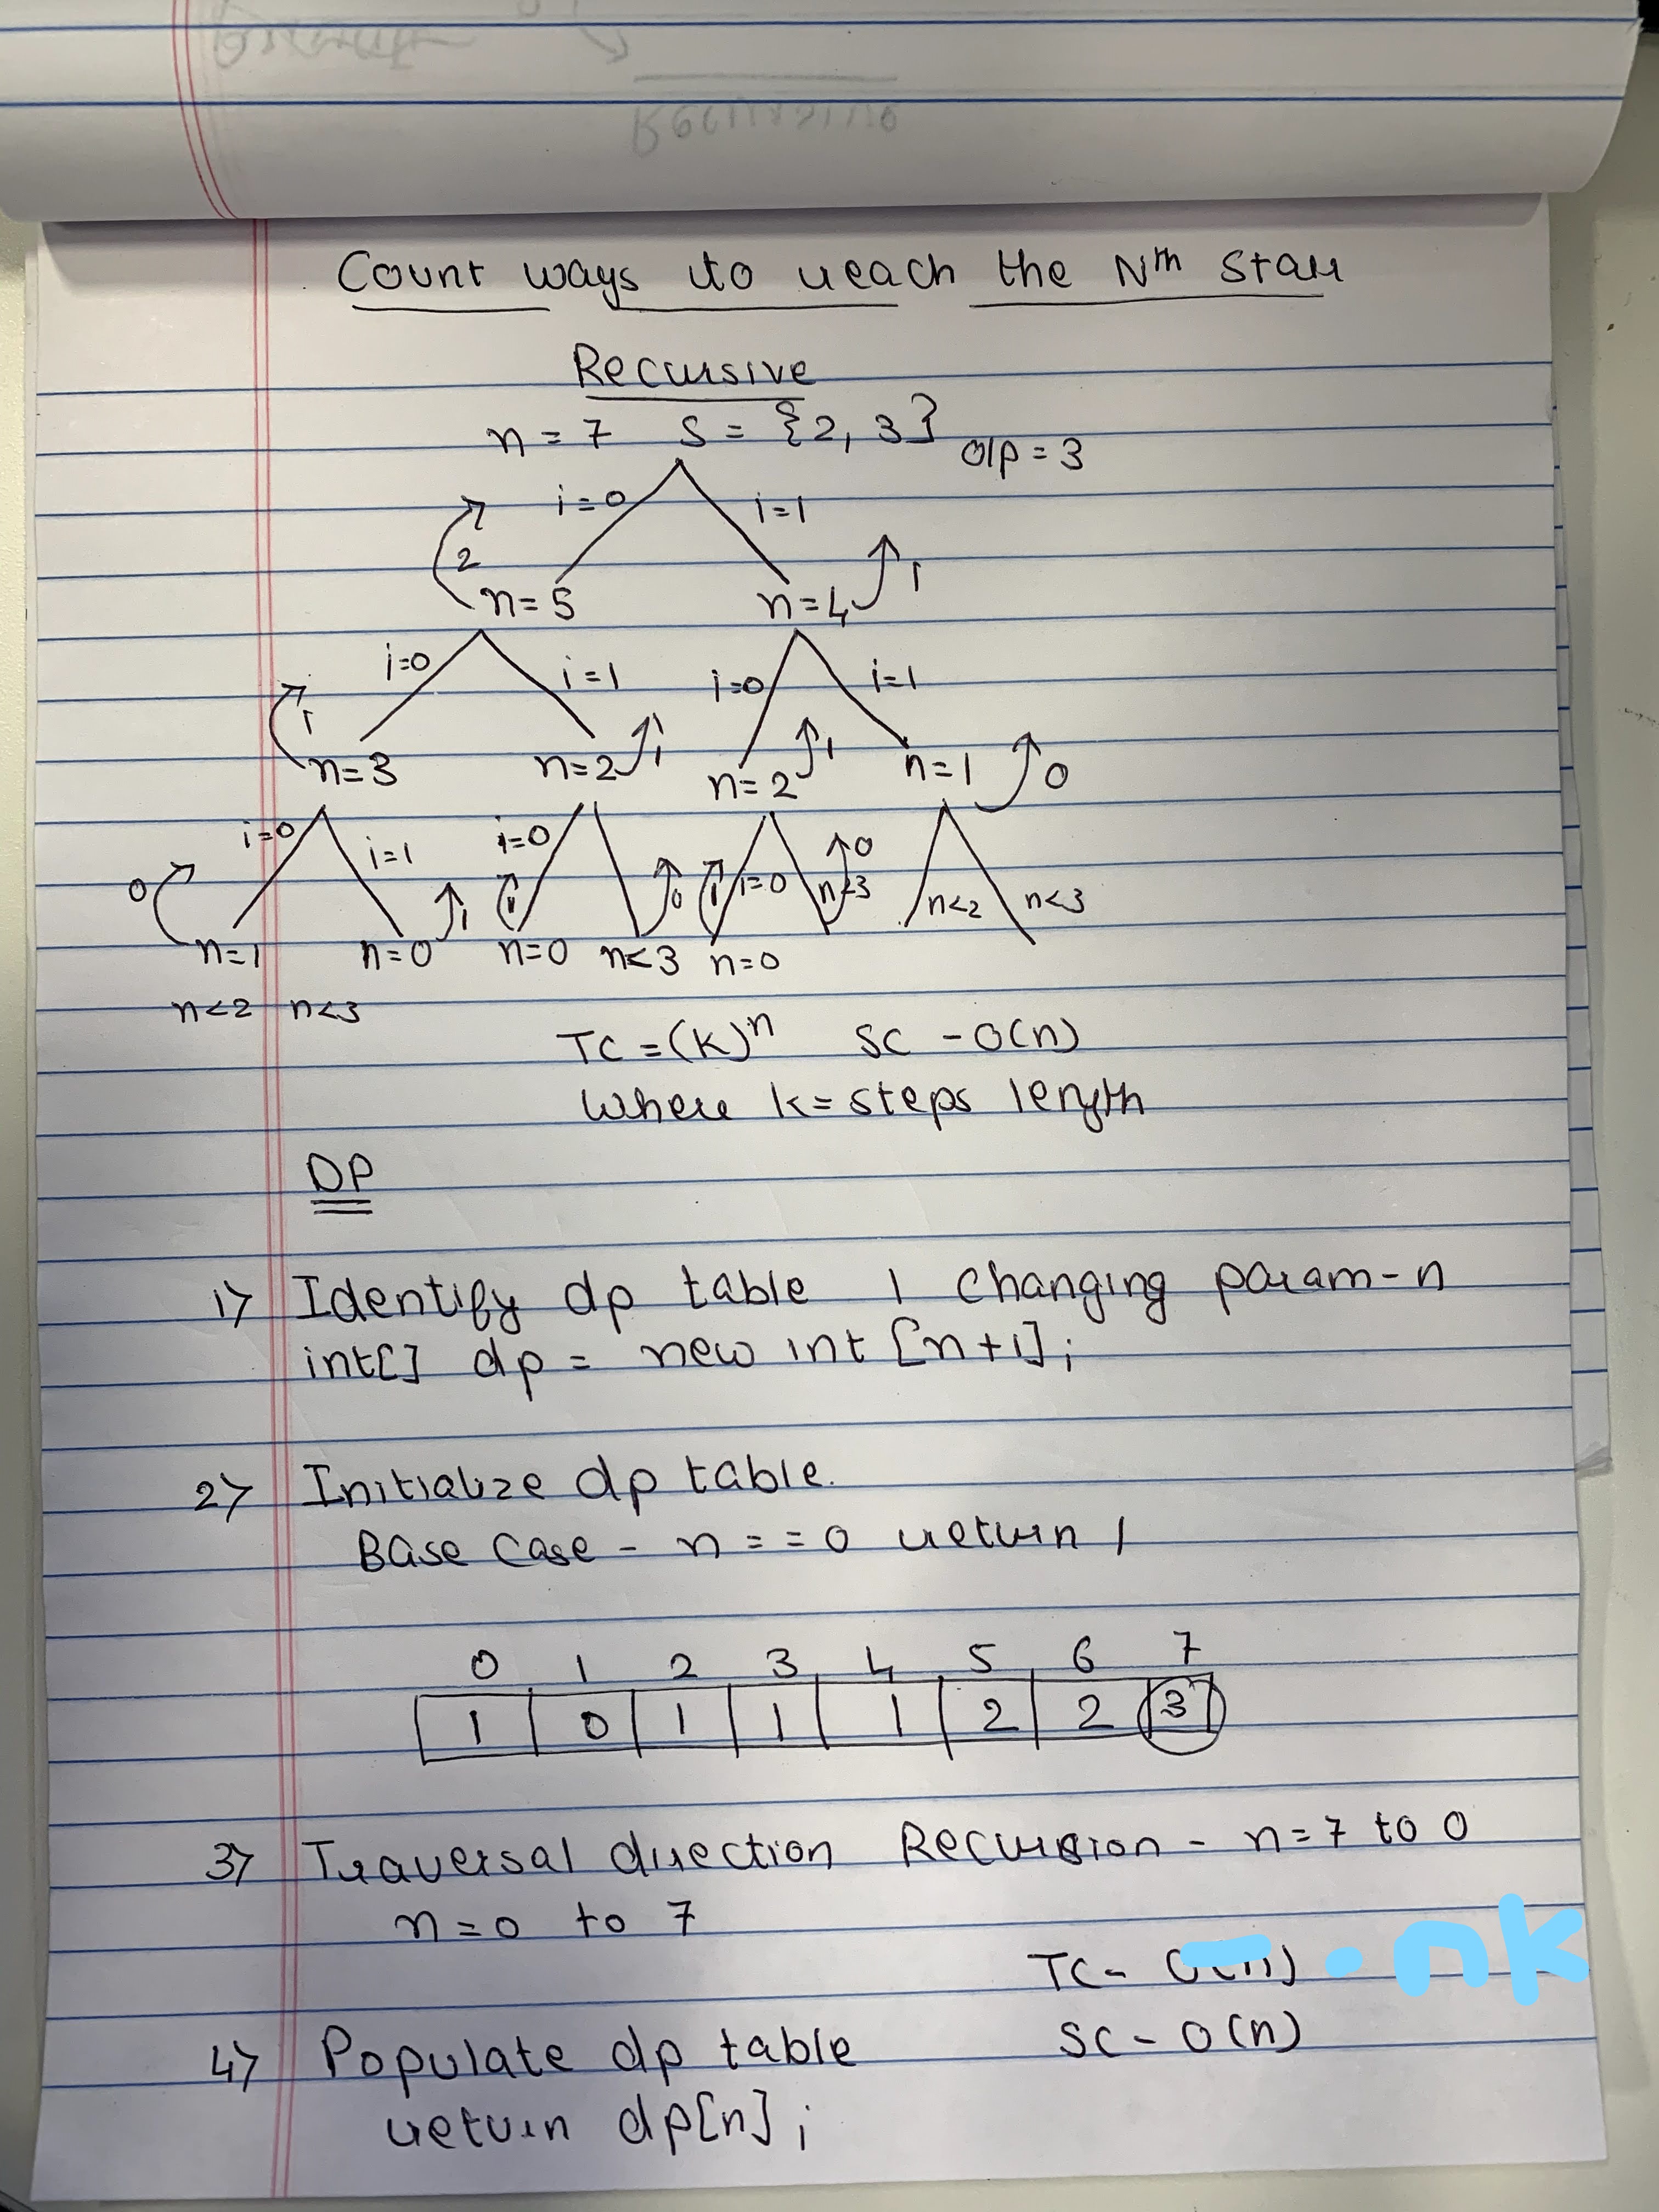 Count ways to reach the Nth Stair
Recursive
n = 7 S = {2, 3} O/P = 3
i=0 i=1
2 1
n=5 n=4
i=0 i=1 i=0 i=1
1 1 1 0
n=3 n=2 n=2 n=1
i=0 i=1 i=0 i=0 n<3 n<2 n<3
0 1 1 0 1 0
n=1 n=0 n=0 n<3 n=0
n<2 n<3
TC = (K)^n SC - O(n)
Where k = steps length
DP
1> Identify dp table 1 Changing param - n
int[] dp = new int [n+1];
2> Initialize dp table.
Base Case - n == 0 return 1
0 1 2 3 4 5 6 7
1 0 1 1 1 2 2 3
3> Traversal direction Recursion - n=7 to 0
n=0 to 7
TC - O(n) . nk
4> Populate dp table SC - O(n)
return dp[n];